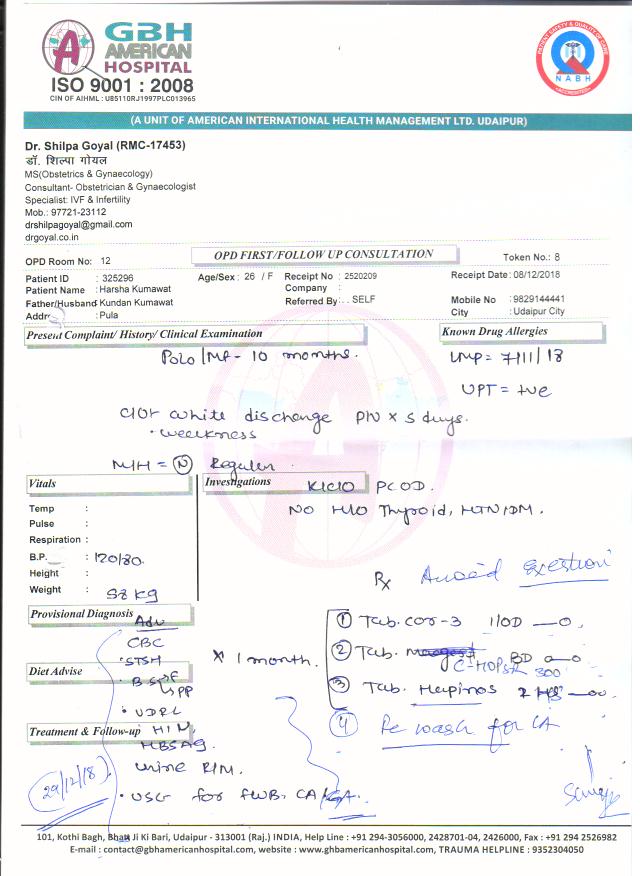 GBH
AMERICAN
HOSPITAL
ISO 9001 : 2008
CIN OF AIHML : U85110RJ1997PLC013965
PATIENT SAFETY & QUALITY OF CARE
NABH
ACCREDITED
(A UNIT OF AMERICAN INTERNATIONAL HEALTH MANAGEMENT LTD. UDAIPUR)
Dr. Shilpa Goyal (RMC-17453)
डॉ. शिल्पा गोयल
MS(Obstetrics & Gynaecology)
Consultant- Obstetrician & Gynaecologist
Specialist: IVF & Infertility
Mob.: 97721-23112
drshilpagoyal@gmail.com
drgoyal.co.in
OPD Room No: 12 OPD FIRST/FOLLOW UP CONSULTATION Token No.: 8
Patient ID : 325296 Age/Sex : 26 / F Receipt No : 2520209 Receipt Date: 08/12/2018
Patient Name : Harsha Kumawat Company :
Father/Husband Kundan Kumawat Referred By: . . SELF Mobile No : 9829144441
Addr : Pula City : Udaipur City
Present Complaint/ History/ Clinical Examination Known Drug Allergies
10 months. LMP = 7/11/18
UPT = +ve
C/O white discharge P/V x 5 days.
weekness
M/H = N Reguler
Vitals Investigations K/C/O PCOD.
NO H/O Thyroid, HTN/DM.
Temp :
Pulse :
Respiration :
B.P. : 120/80.
Height :
Weight : 58 kg
Rx Avoid Exertion
Provisional Diagnosis Adv
CBC
① Tab. COR-3 1 OD
x 1 month. ② Tab. BD
300
Diet Advise
PP
③ Tab. HS
VDRL
④ wash for LA
Treatment & Follow-up HIV
HBSAG.
urine R/M.
29/12/18
USG for FWB. CA/GA.
101, Kothi Bagh, Bhatt Ji Ki Bari, Udaipur - 313001 (Raj.) INDIA, Help Line : +91 294-3056000, 2428701-04, 2426000, Fax : +91 294 2526982
E-mail : contact@gbhamericanhospital.com, website : www.gbhamericanhospital.com, TRAUMA HELPLINE : 9352304050